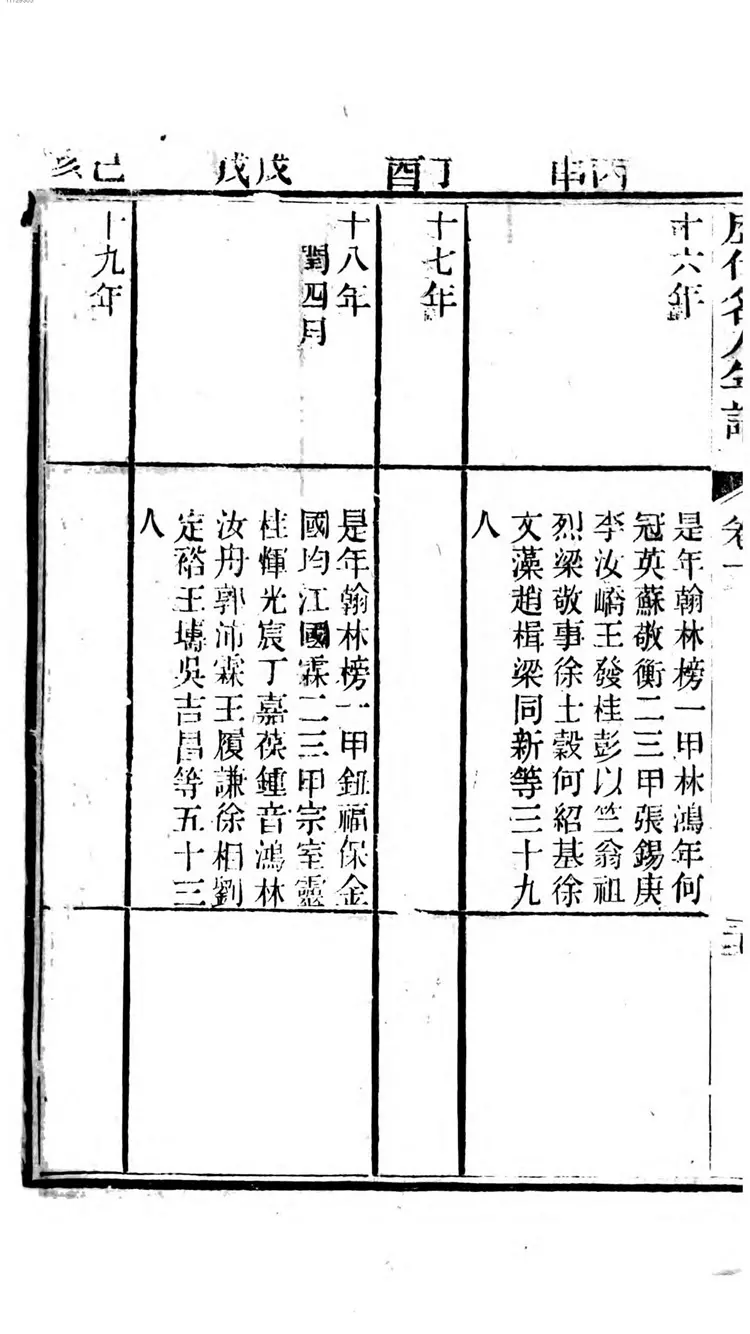 歷代名人年譜
卷十
丙申
十六年
是年翰林榜一甲林鴻年何
冠英蘇敬衡二三甲張錫庚
李汝嶠王發桂彭以竺翁祖
烈梁敬事徐士穀何紹基徐
文藻趙楫梁同新等三十九
人
丁酉
十七年
戊戌
十八年
閏四月
是年翰林榜一甲鈕福保金
國均江國霖二三甲宗室靈
桂惲光宸丁嘉葆鍾音鴻林
汝舟郭沛霖王履謙徐相劉
定裕王㙻吳吉昌等五十三
人
己亥
十九年